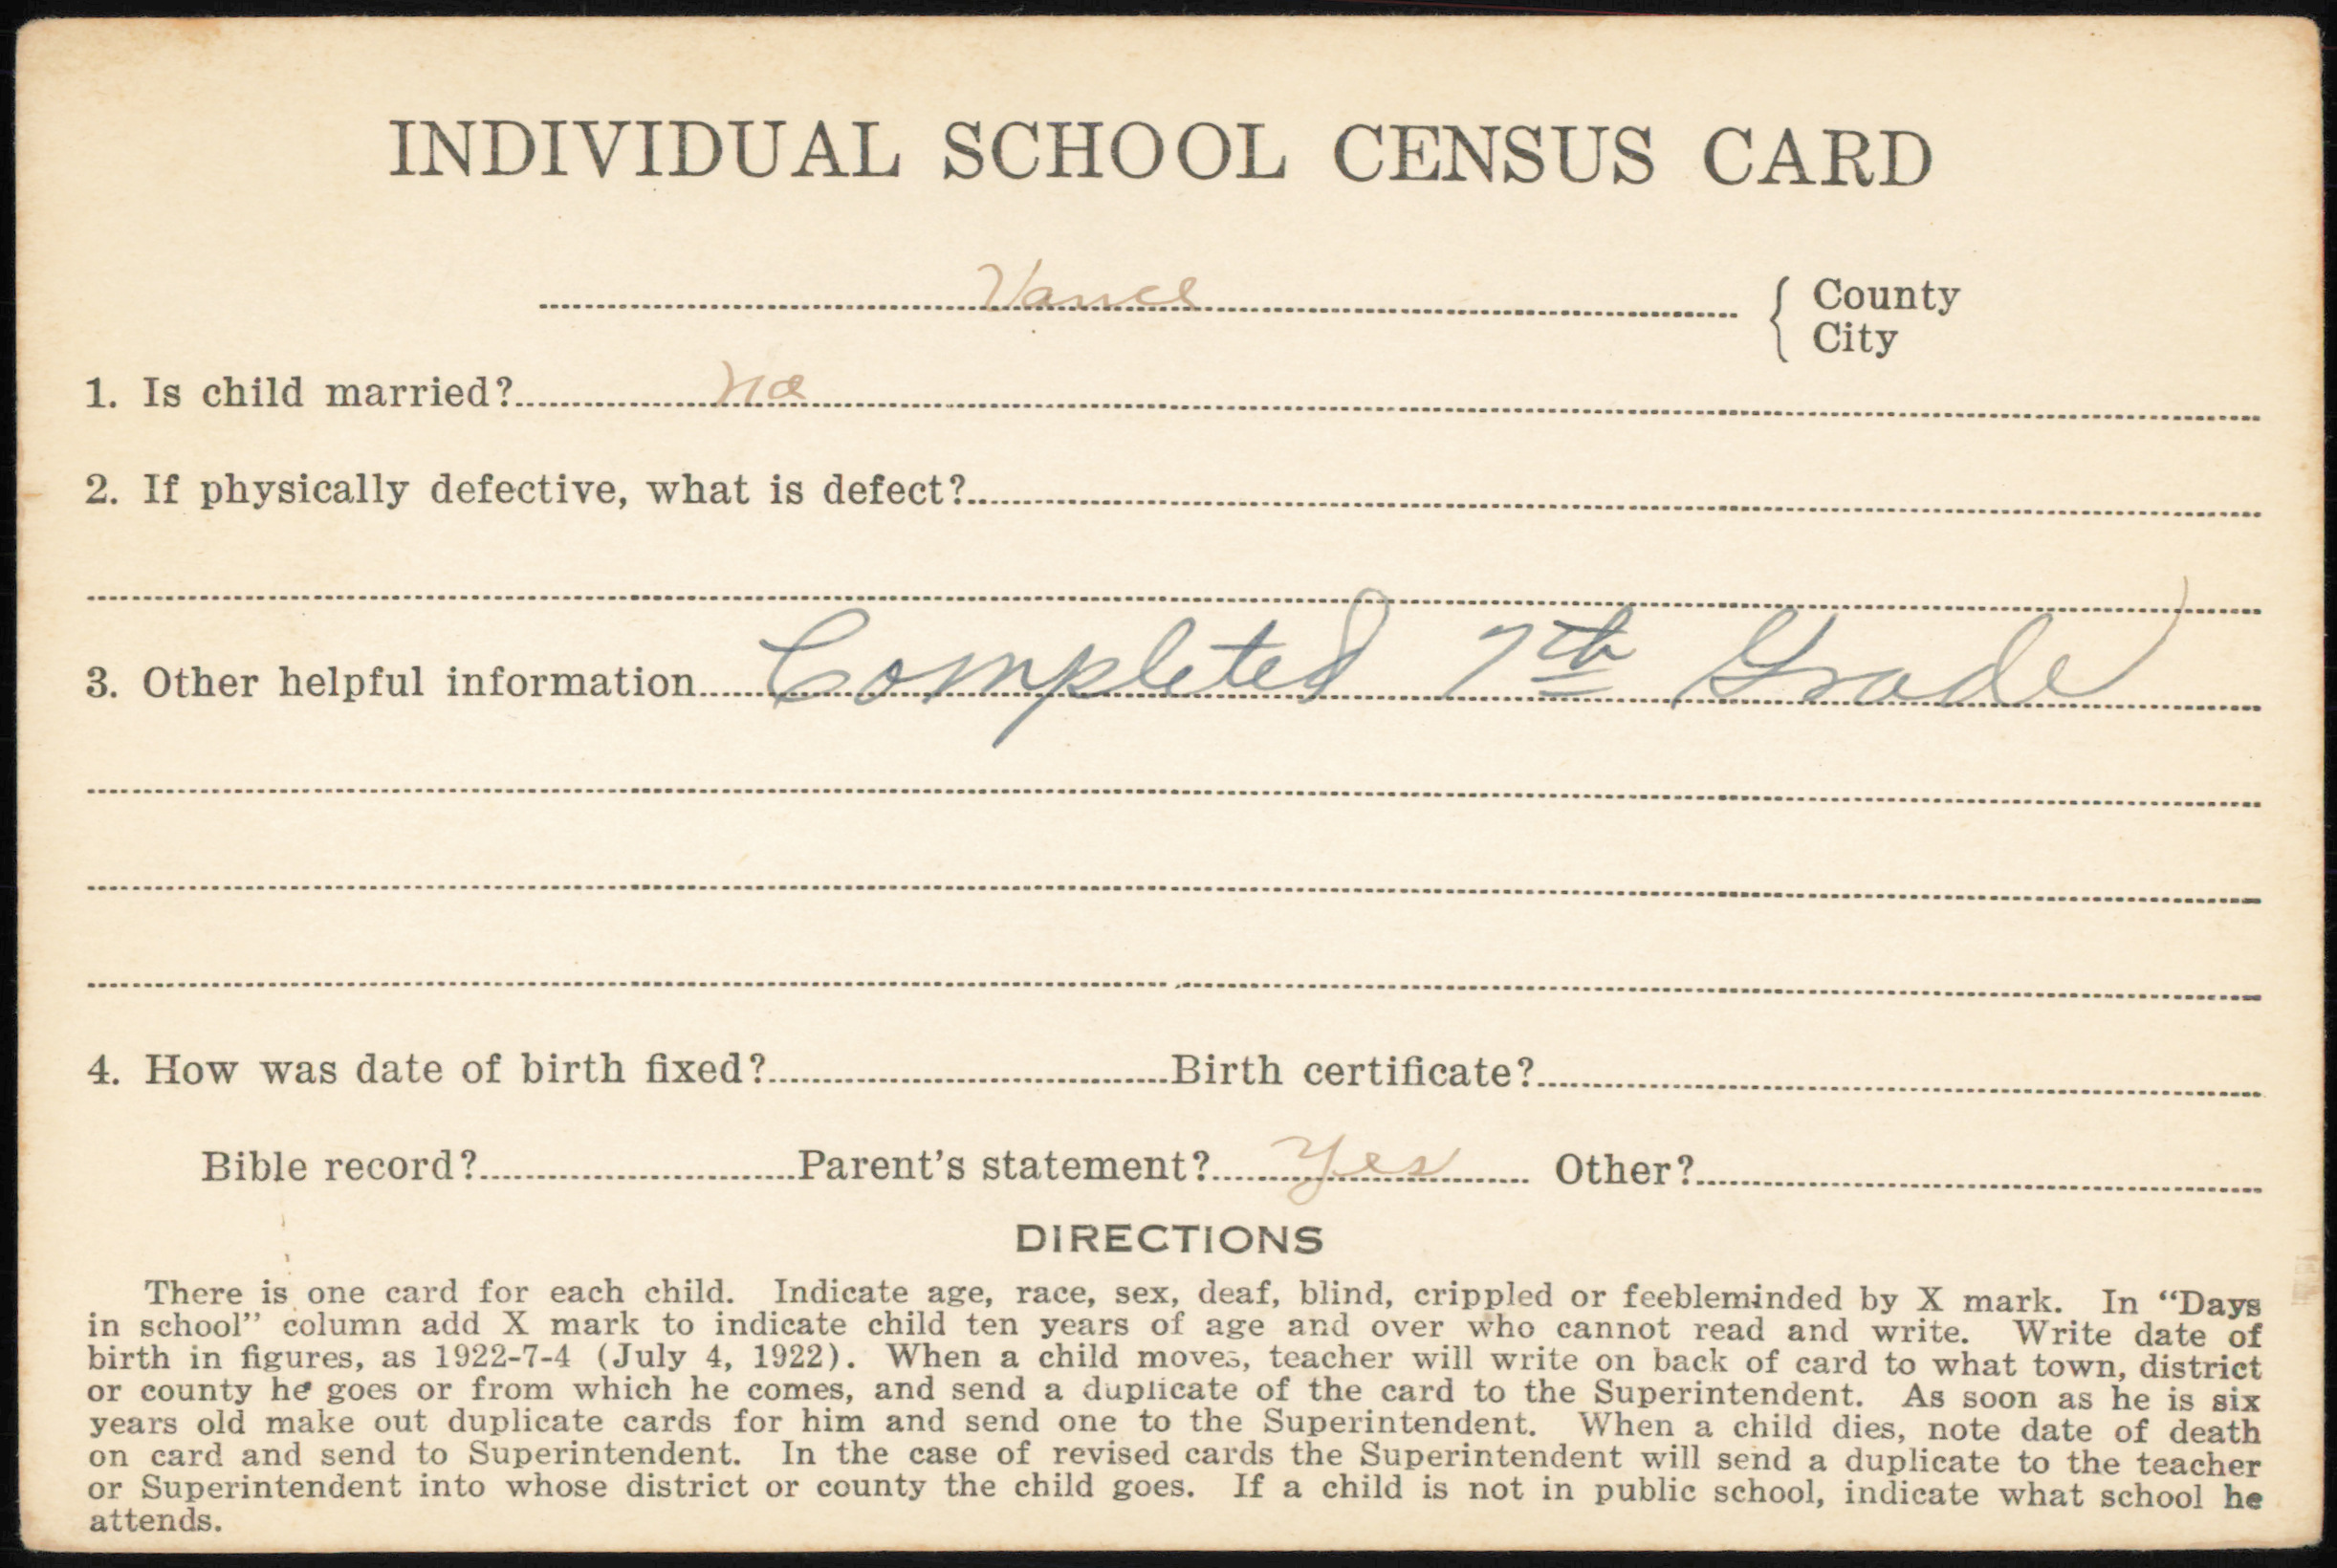 INDIVIDUAL SCHOOL CENSUS CARD
Vance { County
City
1. Is child married? no
2. If physically defective, what is defect?
3. Other helpful information Completed 7th Grade
4. How was date of birth fixed? Birth certificate?
Bible record? Parent's statement? Yes Other?
DIRECTIONS
There is one card for each child. Indicate age, race, sex, deaf, blind, crippled or feebleminded by X mark. In “Days
in school” column add X mark to indicate child ten years of age and over who cannot read and write. Write date of
birth in figures, as 1922-7-4 (July 4, 1922). When a child moves, teacher will write on back of card to what town, district
or county he goes or from which he comes, and send a duplicate of the card to the Superintendent. As soon as he is six
years old make out duplicate cards for him and send one to the Superintendent. When a child dies, note date of death
on card and send to Superintendent. In the case of revised cards the Superintendent will send a duplicate to the teacher
or Superintendent into whose district or county the child goes. If a child is not in public school, indicate what school he
attends.